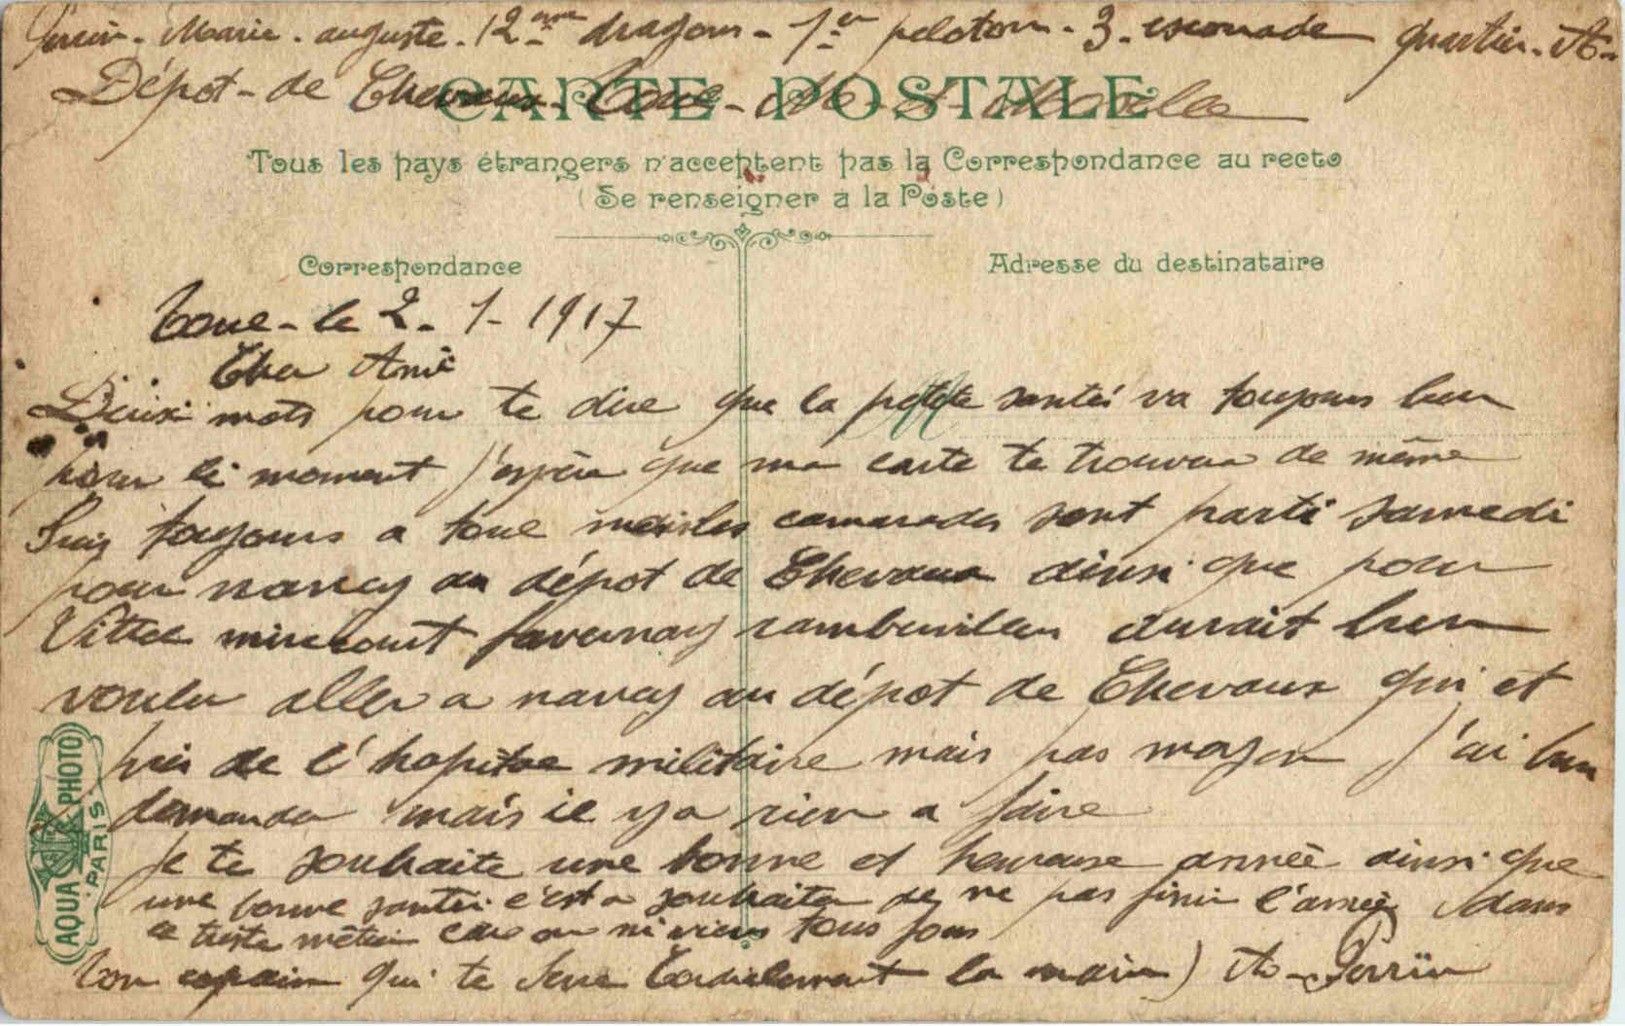 Perrin - Marie - auguste - 12ème dragons - 1er peloton - 3 - escouade quartier - A -
Dépot - de Chevaux - Toul - Mthe - et - Moselle
CARTE POSTALE
Tous les pays étrangers n'acceptent pas la Correspondance au recto
(Se renseigner à la Poste)
Correspondance
Adresse du destinataire
Toul - le 2 - 1 - 1917
Cher Ami
Deux mots pour te dire que la petite santé va toujours bien
pour le moment J'espère que ma carte te trouvera de même
Suis toujours a toul mais les camarades sont parti samedi
pour nancy au dépot de Chevaux ainsi que pour
Vittel mirecourt favernay rambervillers aurait bien
voulu aller a nancy au dépot de Chevaux qui et
près de l'hopital militaire mais pas moyen J'ai bien
demander mais il y a rien a faire
Je te souhaite une bonne et heureuse année ainsi que
une bonne santée c'est a souhaiter de ne pas finir l'année dans
ce triste métier car on ni viens tous fous
Ton copain qui te serre Cordialement la main) A - Perrin
AQUA PHOTO PARIS